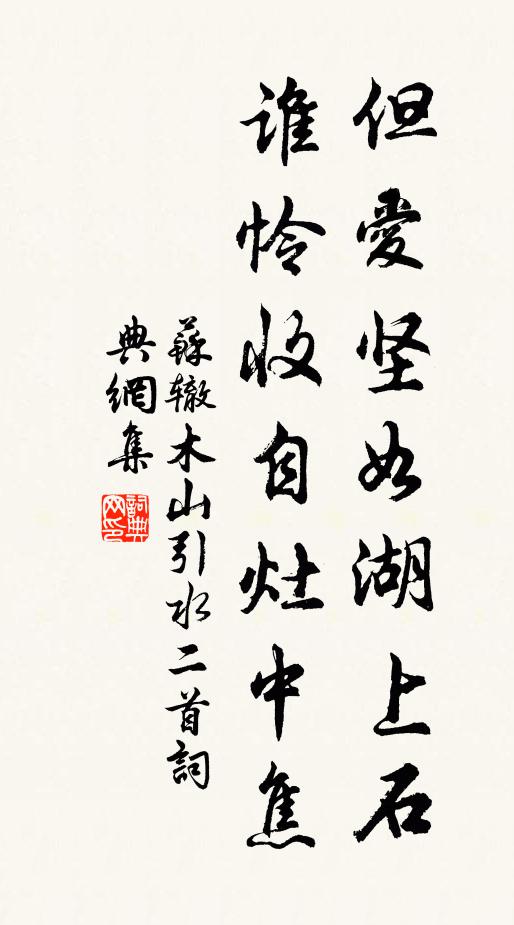 但愛坚如湖上石
谁怜收自灶中焦
蘇辙木山引水二首詞
典網集
詞典
网印